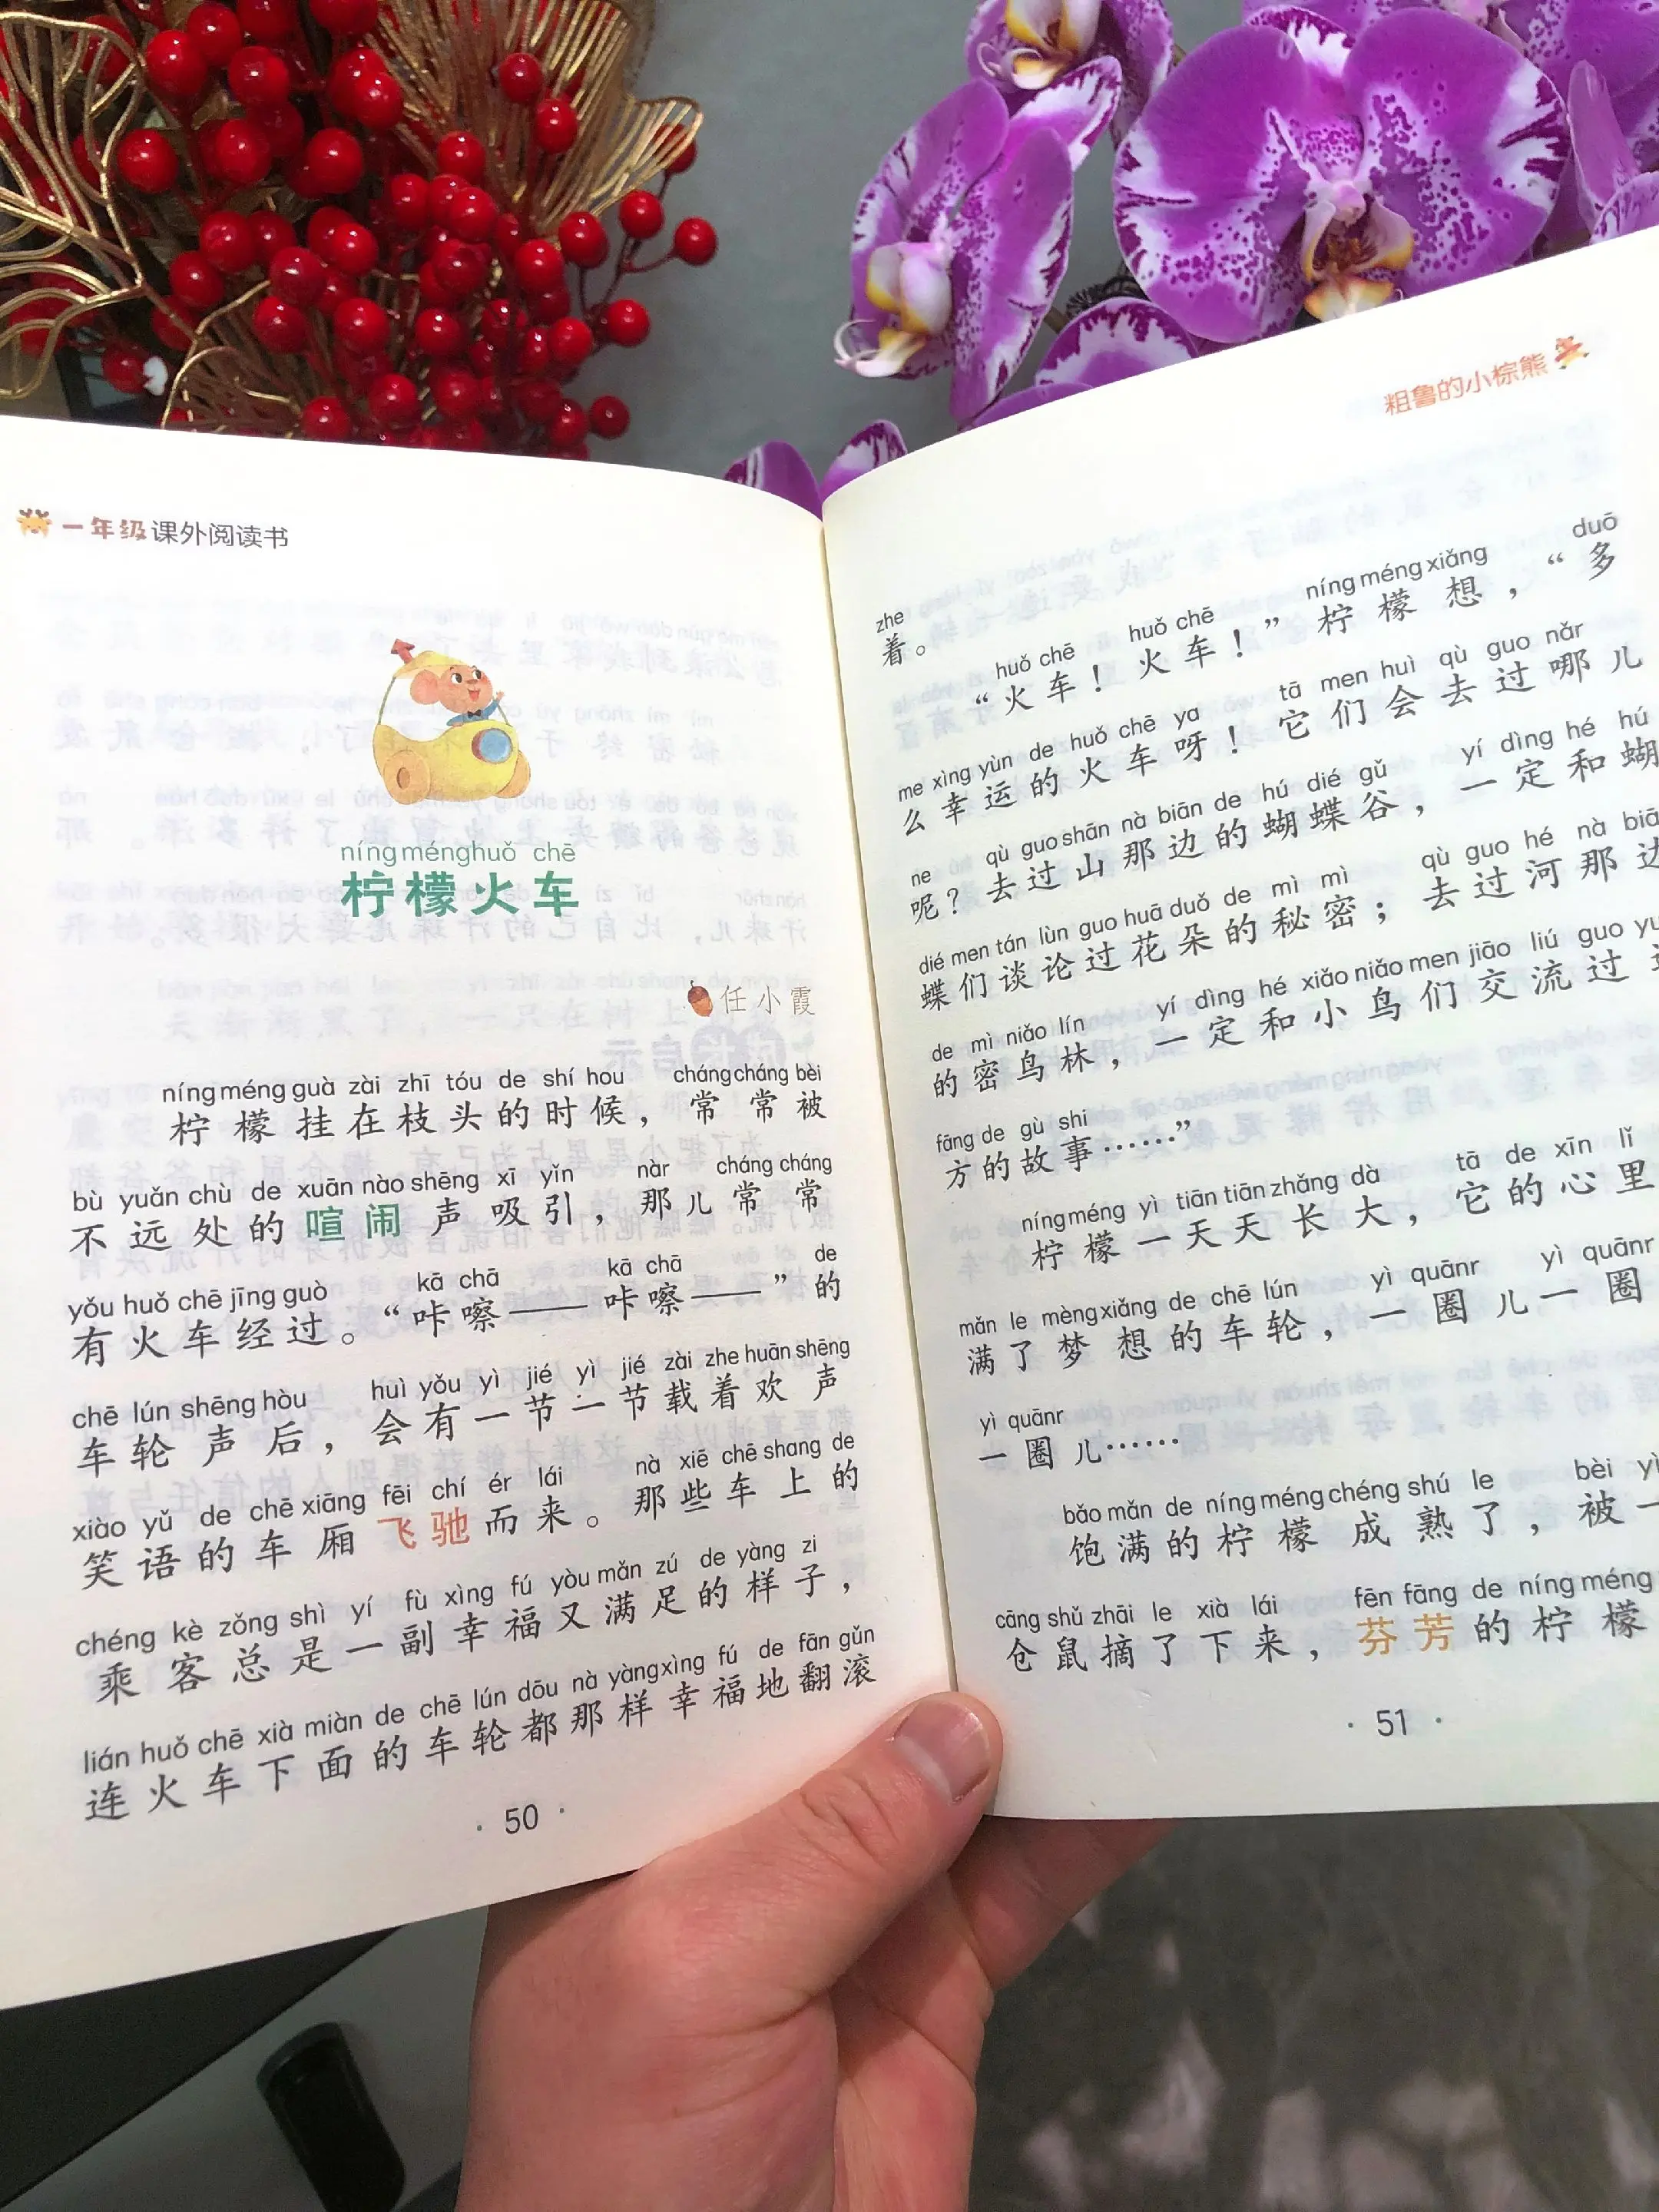 一年级课外阅读书
níng méng huǒ chē
柠檬火车
任小霞
níng méng guà zài zhī tóu de shí hou cháng cháng bèi
柠檬挂在枝头的时候，常常被
bù yuǎn chù de xuān nào shēng xī yǐn nàr cháng cháng
不远处的喧闹声吸引，那儿常常
yǒu huǒ chē jīng guò kā chā kā chā de
有火车经过。“咔嚓——咔嚓——”的
chē lún shēng hòu huì yǒu yì jié yì jié zài zhe huān shēng
车轮声后，会有一节一节载着欢声
xiào yǔ de chē xiāng fēi chí ér lái nà xiē chē shang de
笑语的车厢飞驰而来。那些车上的
chéng kè zǒng shì yí fù xìng fú yòu mǎn zú de yàng zi
乘客总是一副幸福又满足的样子，
lián huǒ chē xià miàn de chē lún dōu nà yàng xìng fú de fān gǔn
连火车下面的车轮都那样幸福地翻滚
· 50 ·
粗鲁的小棕熊
zhe
着。
huǒ chē huǒ chē níng méng xiǎng duō
“火车！火车！”柠檬想，“多
me xìng yùn de huǒ chē ya tā men huì qù guo nǎr
么幸运的火车呀！它们会去过哪儿
ne qù guo shān nà biān de hú dié gǔ yí dìng hé hú
呢？去过山那边的蝴蝶谷，一定和蝴
dié men tán lùn guo huā duǒ de mì mì qù guo hé nà biā
蝶们谈论过花朵的秘密；去过河那边
de mì niǎo lín yí dìng hé xiǎo niǎo men jiāo liú guo yu
的密鸟林，一定和小鸟们交流过
fāng de gù shi
方的故事……”
níng méng yì tiān tiān zhǎng dà tā de xīn lǐ
柠檬一天天长大，它的心里
mǎn le mèng xiǎng de chē lún yì quānr yì quānr
满了梦想的车轮，一圈儿一圈
yì quānr
一圈儿……
bǎo mǎn de níng méng chéng shú le bèi yì
饱满的柠檬成熟了，被一
cāng shǔ zhāi le xià lái fēn fāng de níng méng
仓鼠摘了下来，芬芳的柠檬
· 51 ·